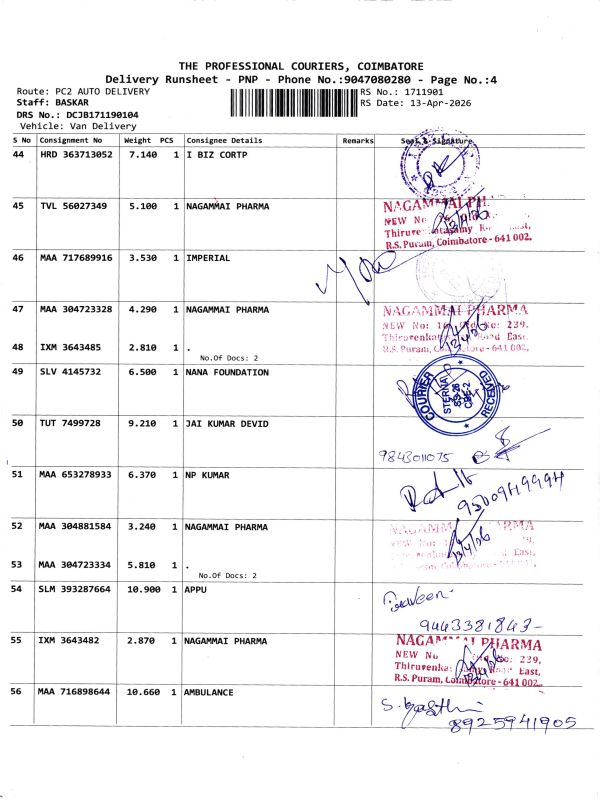 THE PROFESSIONAL COURIERS, COIMBATORE
Delivery Runsheet - PNP - Phone No.:9047080280 - Page No.:4
Route: PC2 AUTO DELIVERY RS No.: 1711901
Staff: BASKAR RS Date: 13-Apr-2026
DRS No.: DCJB171190104
Vehicle: Van Delivery
S No Consignment No Weight PCS Consignee Details Remarks Seal & Signature
44 HRD 363713052 7.140 1 I BIZ CORTP
45 TVL 56027349 5.100 1 NAGAMMAI PHARMA
NAGAMMAI PH
NEW No
13/4/26
Thiruve
R.S. Puram, Coimbatore - 641 002.
46 MAA 717689916 3.530 1 IMPERIAL
47 MAA 304723328 4.290 1 NAGAMMAI PHARMA
NAGAMMAI PHARMA
NEW No: 239,
Thiruvenka Road East,
13/4/26
R.S. Puram, - 641 002.
48 IXM 3643485 2.810 1 .
No.Of Docs: 2
49 SLV 4145732 6.500 1 NANA FOUNDATION
COURIER
RECEIVED
50 TUT 7499728 9.210 1 JAI KUMAR DEVID
9843011075
51 MAA 653278933 6.370 1 NP KUMAR
52 MAA 304881584 3.240 1 NAGAMMAI PHARMA
NAGAMM ARMA
13/4/26
East,
53 MAA 304723334 5.810 1 .
No.Of Docs: 2
54 SLM 393287664 10.900 1 APPU
9443381843-
55 IXM 3643482 2.870 1 NAGAMMAI PHARMA
NAGAMM PHARMA
NEW No No: 239,
Thiruvenka East,
13/4/26
R.S. Puram, Coimbatore - 641 002.
56 MAA 716898644 10.660 1 AMBULANCE
8925941905